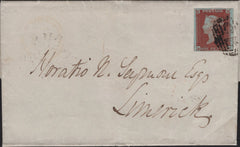 Horatio N. Seymour Esq
Limerick